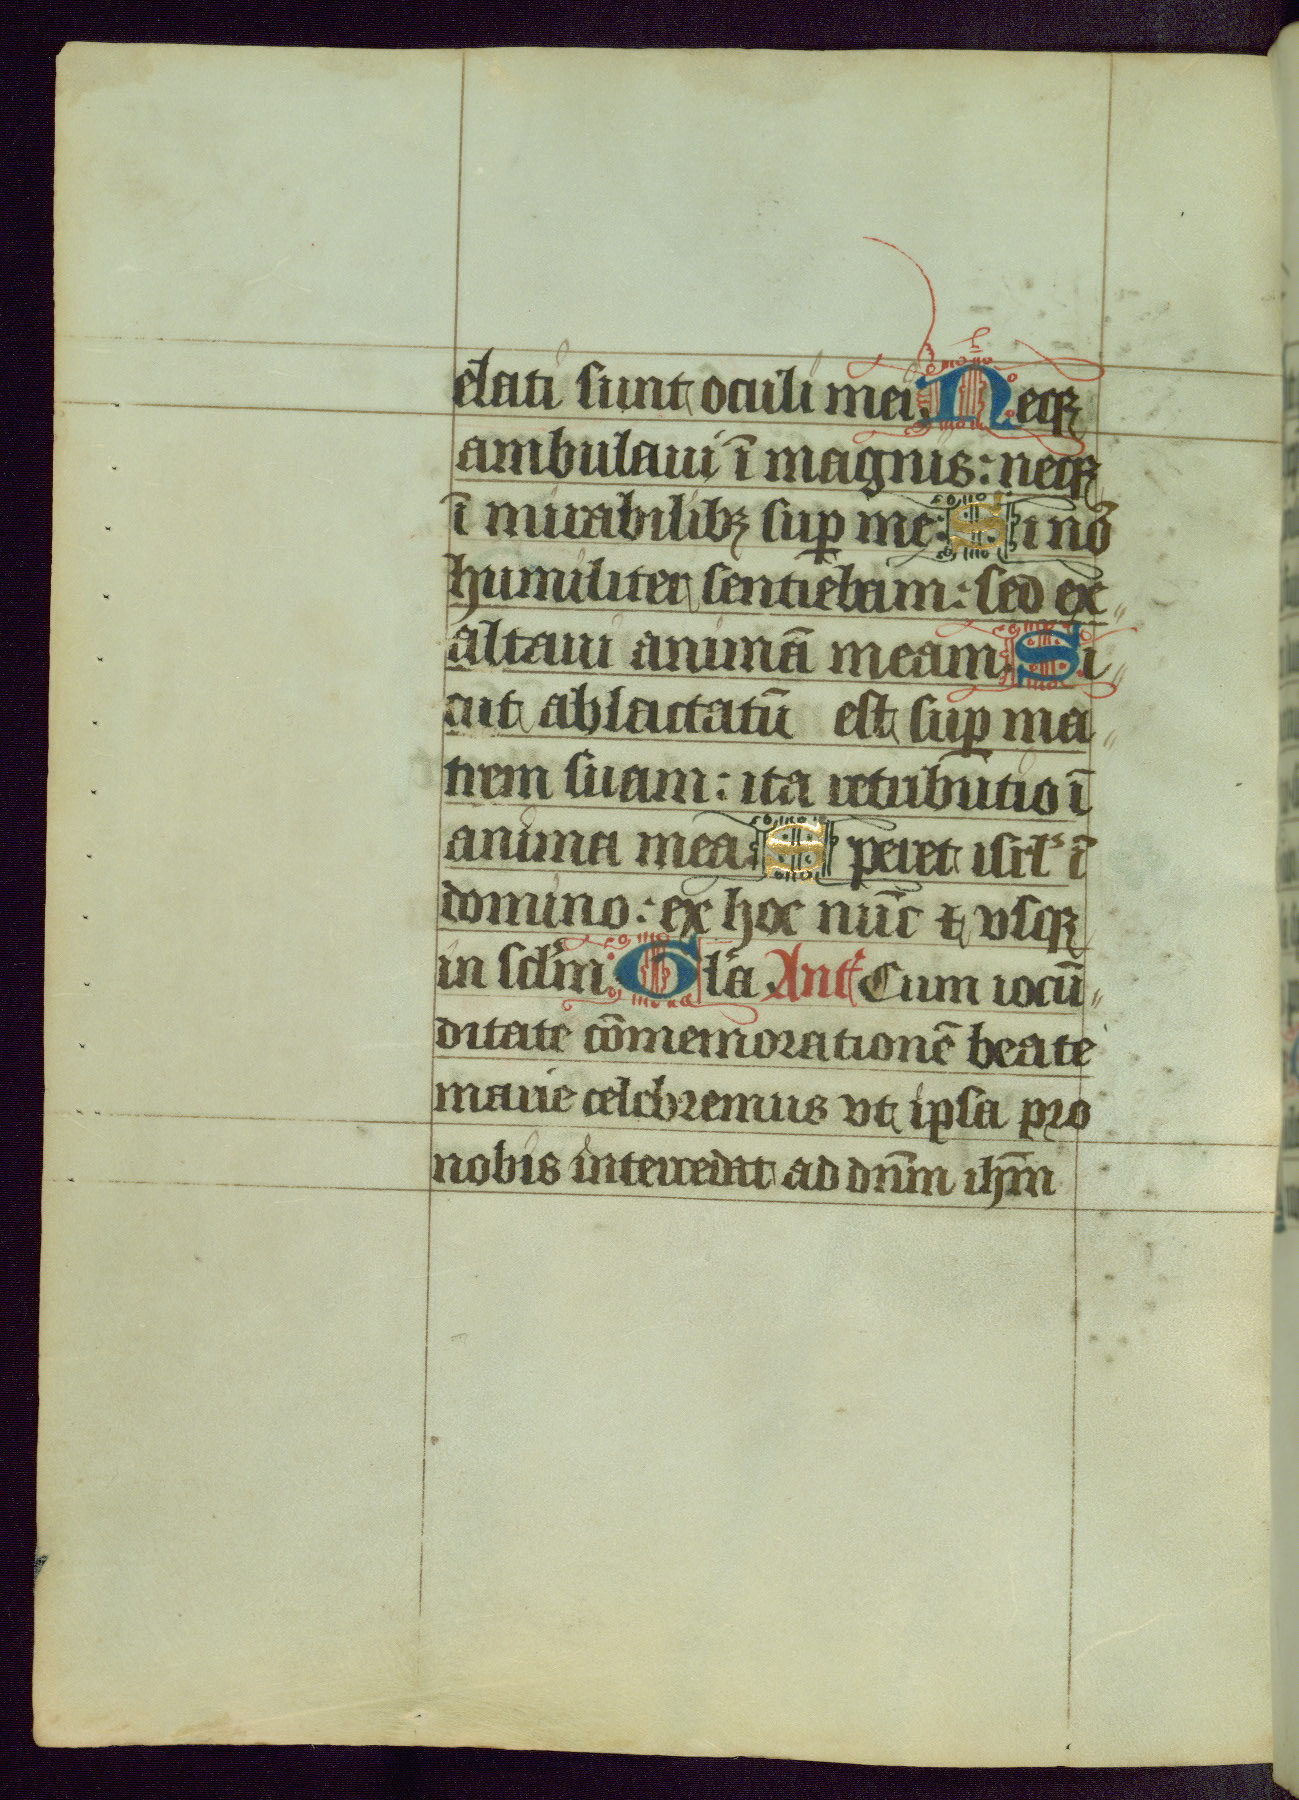 elati sunt oculi mei. Neqꝫ
ambulaui ī magnis: neqꝫ
ī mirabilibꝫ suꝑ me: Si nō
humiliter sentiebam: sed ex„
altaui animā meam. Si„
cut ablactatū est suꝑ ma„
trem suam: ita retributio ī
anima mea. Speret isrl' ī
domino: ex hoc nūc et vsqꝫ
in sclm̄. Gla̅ Ant' Cum iocū„
ditate cōmemorationē beate
marie celebremus vt ipsa pro
nobis intercedat ad dn̄m ihm̄